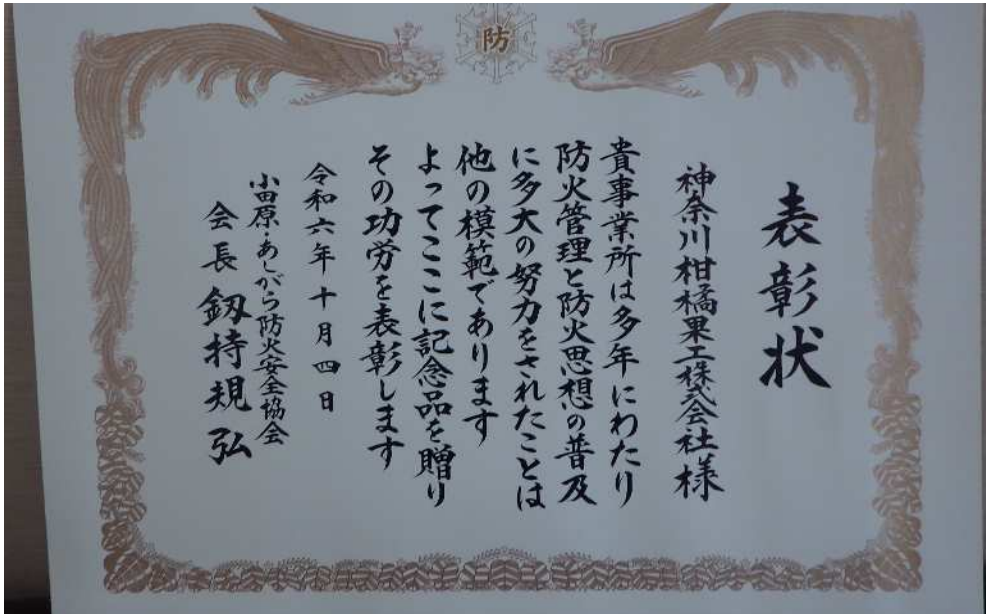 防
表彰状
神奈川柑橘果工株式会社様
貴事業所は多年にわたり
防火管理と防火思想の普及
に多大の努力をされたことは
他の模範であります
よってここに記念品を贈り
その功労を表彰します
令和六年十月四日
小田原・あしがら防火安全協会
会長 釼持規弘